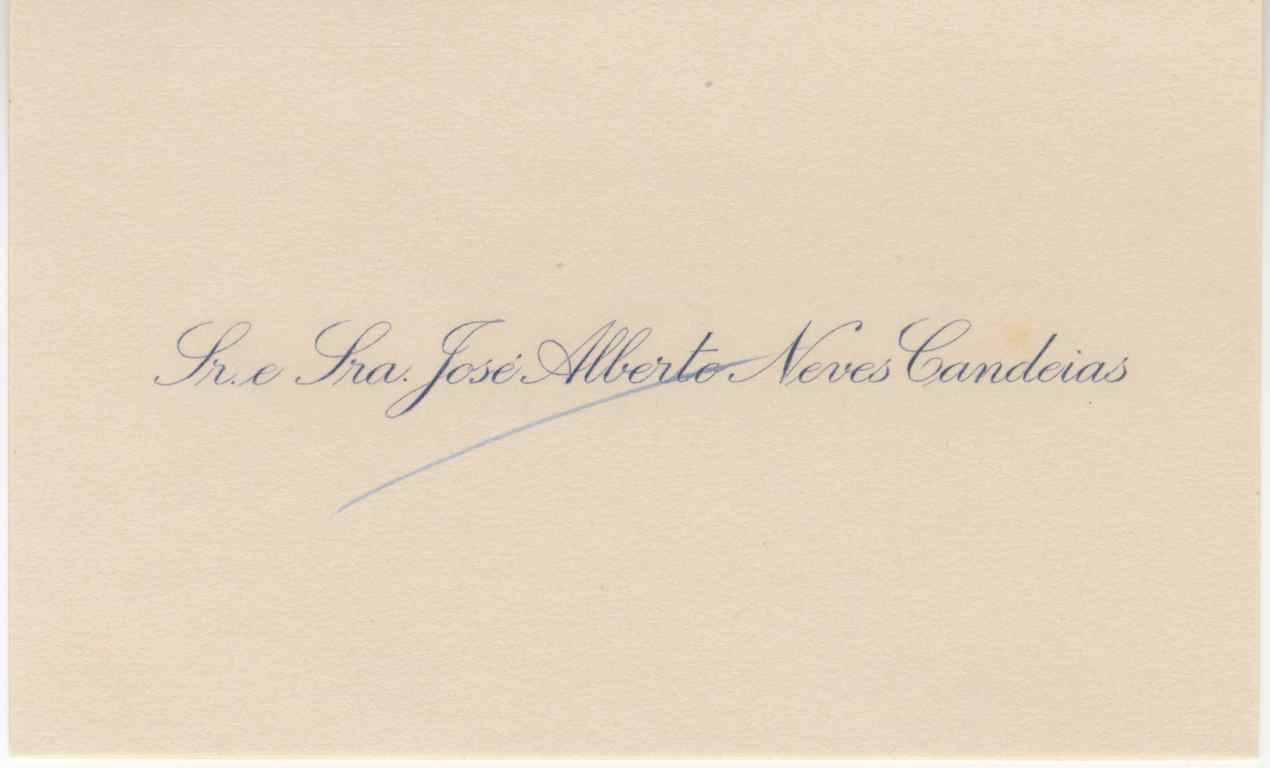 Sr. e Sra. José Alberto Neves Candeias